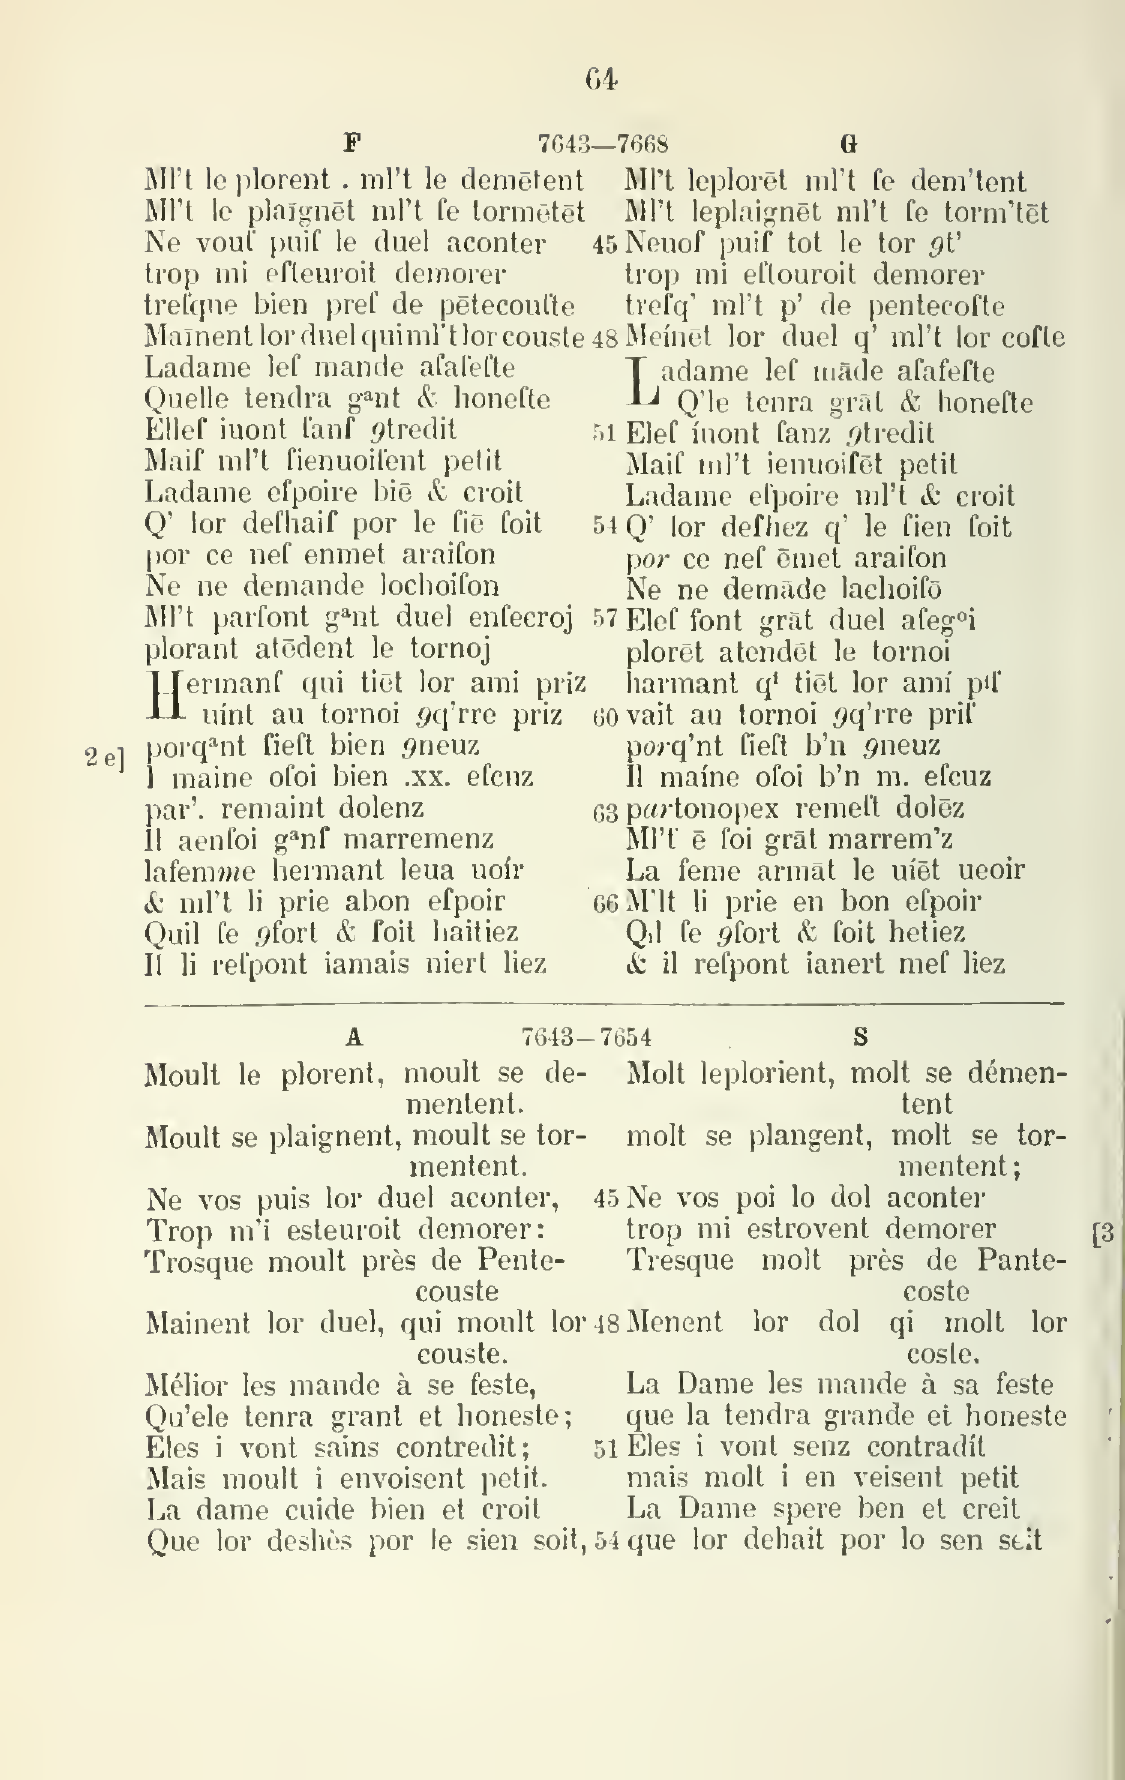 64
F 7643—7668 G
Ml't le plorent . ml't le demētent
Ml't le plaīgnēt ml't ſe tormētēt
Ne vouſ puiſ le duel aconter
trop mi eſteuroit demorer
treſque bien preſ de pētecouſte
Maīnent lor duel qui ml't lor couste
Ladame leſ mande aſaſeſte
Quelle tendra gᵃnt & honeſte
Elleſ iuont ſanſ ꝯtredit
Maiſ ml't ſienuoiſent petit
Ladame eſpoire biē & croit
Q' lor deſhaiſ por le ſiē ſoit
por ce neſ enmet araiſon
Ne ne demande lochoiſon
Ml't parſont gᵃnt duel enſecroj
plorant atēdent le tornoj
Hermanſ qui tiēt lor ami priz
uínt au tornoi ꝯq'rre priz
2 e] porqᵃnt ſieſt bien ꝯneuz
I maine oſoi bien .xx. eſcuz
par'. remaint dolenz
Il aenſoi gᵃnſ marremenz
lafemme hermant leua uoír
& ml't li prie abon eſpoir
Quil ſe ꝯfort & ſoit haitiez
Il li reſpont iamais niert liez
Ml't leplorēt ml't ſe dem'tent
Ml't leplaignēt ml't ſe torm'tēt
45 Neuoſ puiſ tot le tor ꝯt'
trop mi eſtouroit demorer
treſq' ml't p' de pentecoſte
48 Meínēt lor duel q' ml't lor coſte
Ladame leſ māde aſaſeſte
Q'le tenra grāt & honeſte
51 Eleſ íuont ſanz ꝯtredit
Maiſ ml't ienuoiſēt petit
Ladame eſpoire ml't & croit
54 Q' lor deſhez q' le ſien ſoit
por ce neſ ēmet araiſon
Ne ne demāde lachoiſō
57 Eleſ ſont grāt duel aſegᵒi
plorēt atendēt le tornoi
harmant qⁱ tiēt lor amí pⁱſ
60 vait au tornoi ꝯq'rre priſ
porq'nt ſieſt b'n ꝯneuz
Il maíne oſoi b'n m. eſcuz
63 partonopex remeſt dolēz
Ml't ē ſoi grāt marrem'z
La feme armāt le uíēt ueoir
66 M'lt li prie en bon eſpoir
Qıl ſe ꝯfort & ſoit hetiez
& il reſpont ianert meſ liez
A 7643—7654 S
Moult le plorent, moult se de-
mentent.
Moult se plaignent, moult se tor-
mentent.
Ne vos puis lor duel aconter,
Trop m'i esteuroit demorer:
Trosque moult près de Pente-
couste
Mainent lor duel, qui moult lor
couste.
Mélior les mande à se feste,
Qu'ele tenra grant et honeste;
Eles i vont sains contredit;
Mais moult i envoisent petit.
La dame cuide bien et croit
Que lor deshès por le sien soit,
Molt leplorient, molt se démen-
tent
molt se plangent, molt se tor-
mentent;
45 Ne vos poi lo dol aconter
trop mi estrovent demorer [3
Tresque molt près de Pante-
coste
48 Menent lor dol qi molt lor
coste.
La Dame les mande à sa feste
que la tendra grande et honeste
51 Eles i vont senz contradit
mais molt i en veisent petit
La Dame spere ben et creit
54 que lor dehait por lo sen seit